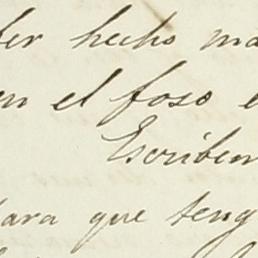 hecho
en el foso
Escriben
para que teng